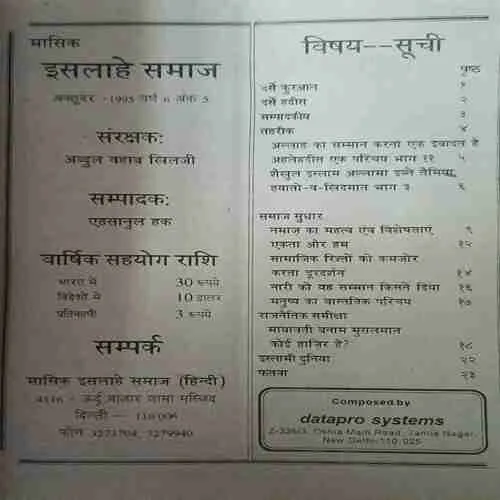 मासिक
इसलाहे समाज
अक्तूबर -1995 वर्ष 6 अंक 5
संरक्षक:
अब्दुल वहाब खिलजी
सम्पादक:
एहसानुल हक
वार्षिक सहयोग राशि
भारत में 30 रूपये
विदेशों में 10 डालर
प्रतिकापी 3 रूपये
सम्पर्क
मासिक इसलाहे समाज (हिन्दी)
4116 - ऊर्दू बाज़ार जामा मस्जिद
दिल्ली — 110 006
फोन 3273704, 3279940
विषय--सूची
पृष्ठ
दर्से कुरआन १
दर्से हदीस २
सम्पादकीय ३
तहरीक ४
अल्लाह का सम्मान करना एक इबादत है
अहलेहदीस एक परिचय भाग ११ ५
शैखुल इस्लाम अल्लामा इब्ने तैमिया
हयातो-व-खिदमात भाग ३ ६
समाज सुधार
नमाज का महत्व एंव विशेषताएं ९
एकता और हम १२
सामाजिक रिश्तों को कमजोर
करता दूरदर्शन १४
नारी को यह सम्मान किसने दिया १६
मनुष्य का वास्तविक परिचय १७
राजनैतिक समीक्षा
मायावती बनाम मुसलमान
कोई हाज़िर है? १८
इस्लामी दुनिया २२
फतवा २३
Composed by
datapro systems
Main Road, Jamia Nagar,
New Delhi-110 025